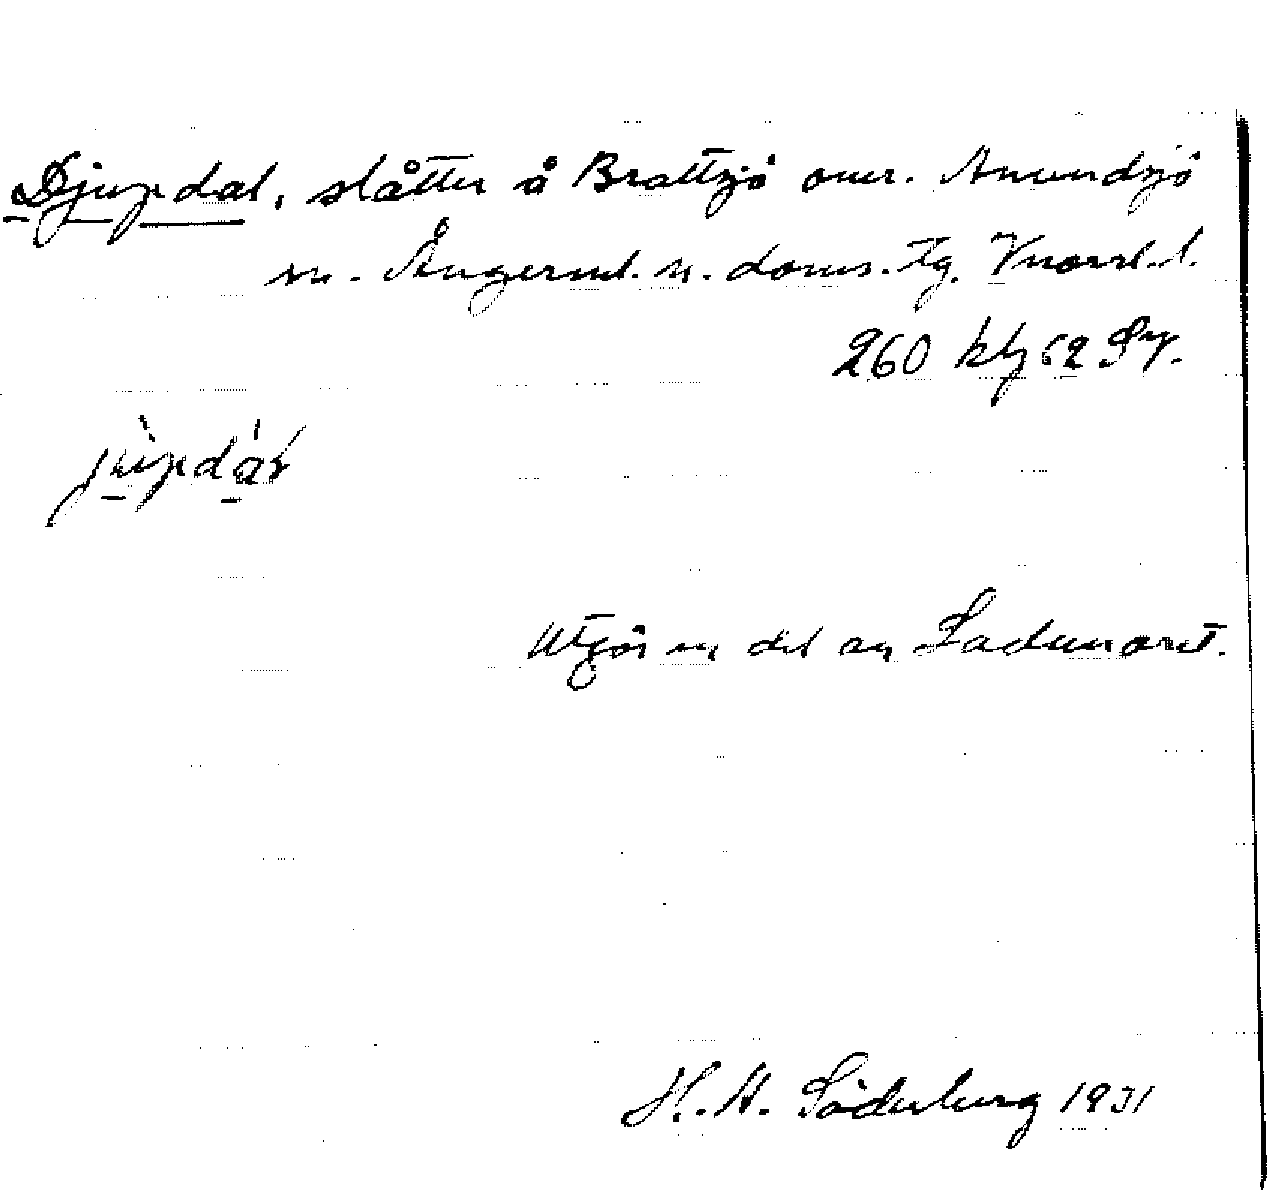 Djupdal, slåtter å Brattsjö omr. Anundsjö
sn. Ångerml. n. doms. tg. Vnorrl. l.
260
jùpdáɽ
Utgör en del av Ladumoret.
H. A. Söderberg 1931